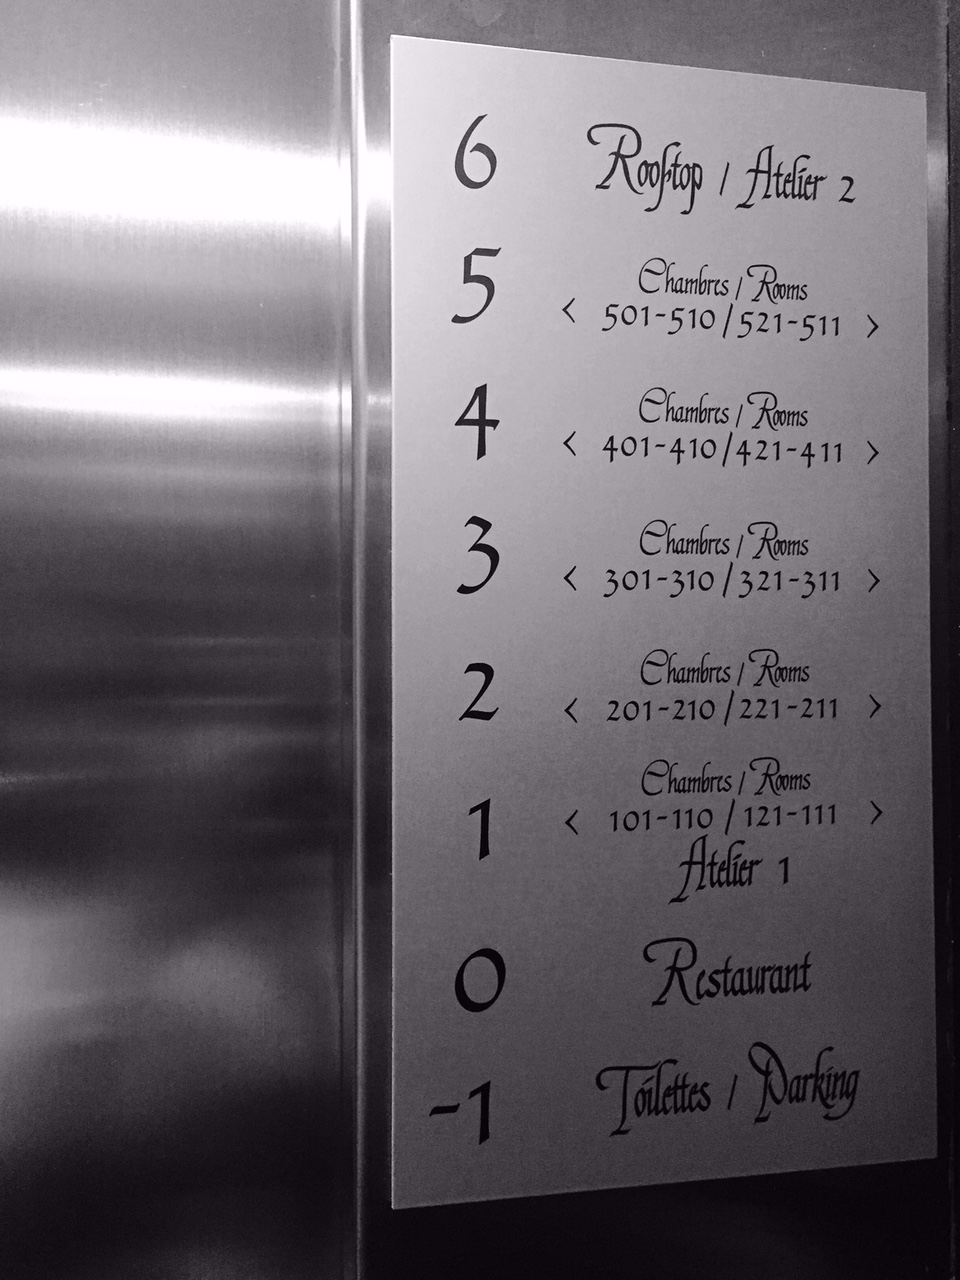 6 Rooftop / Atelier 2
5 Chambres / Rooms
< 501-510 / 521-511 >
4 Chambres / Rooms
< 401-410 / 421-411 >
3 Chambres / Rooms
< 301-310 / 321-311 >
2 Chambres / Rooms
< 201-210 / 221-211 >
1 Chambres / Rooms
< 101-110 / 121-111 >
Atelier 1
0 Restaurant
-1 Toilettes / Parking